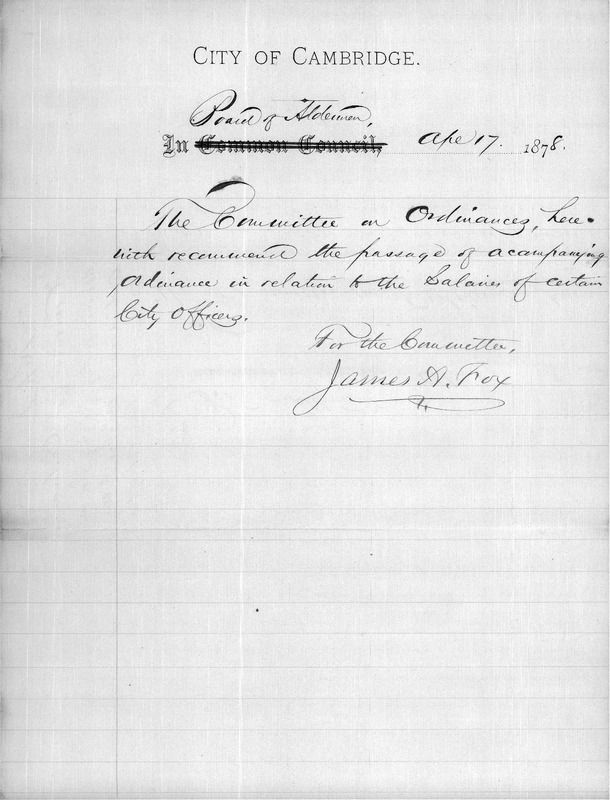 CITY OF CAMBRIDGE.
Board of Aldermen,
In Common Council, Ape 17. 1878.
The Committee on Ordinances, here-
with recommend the passage of acompanying
Ordinance in relation to the Salaries of certain
City Officers.
For the Committee,
James A. Fox